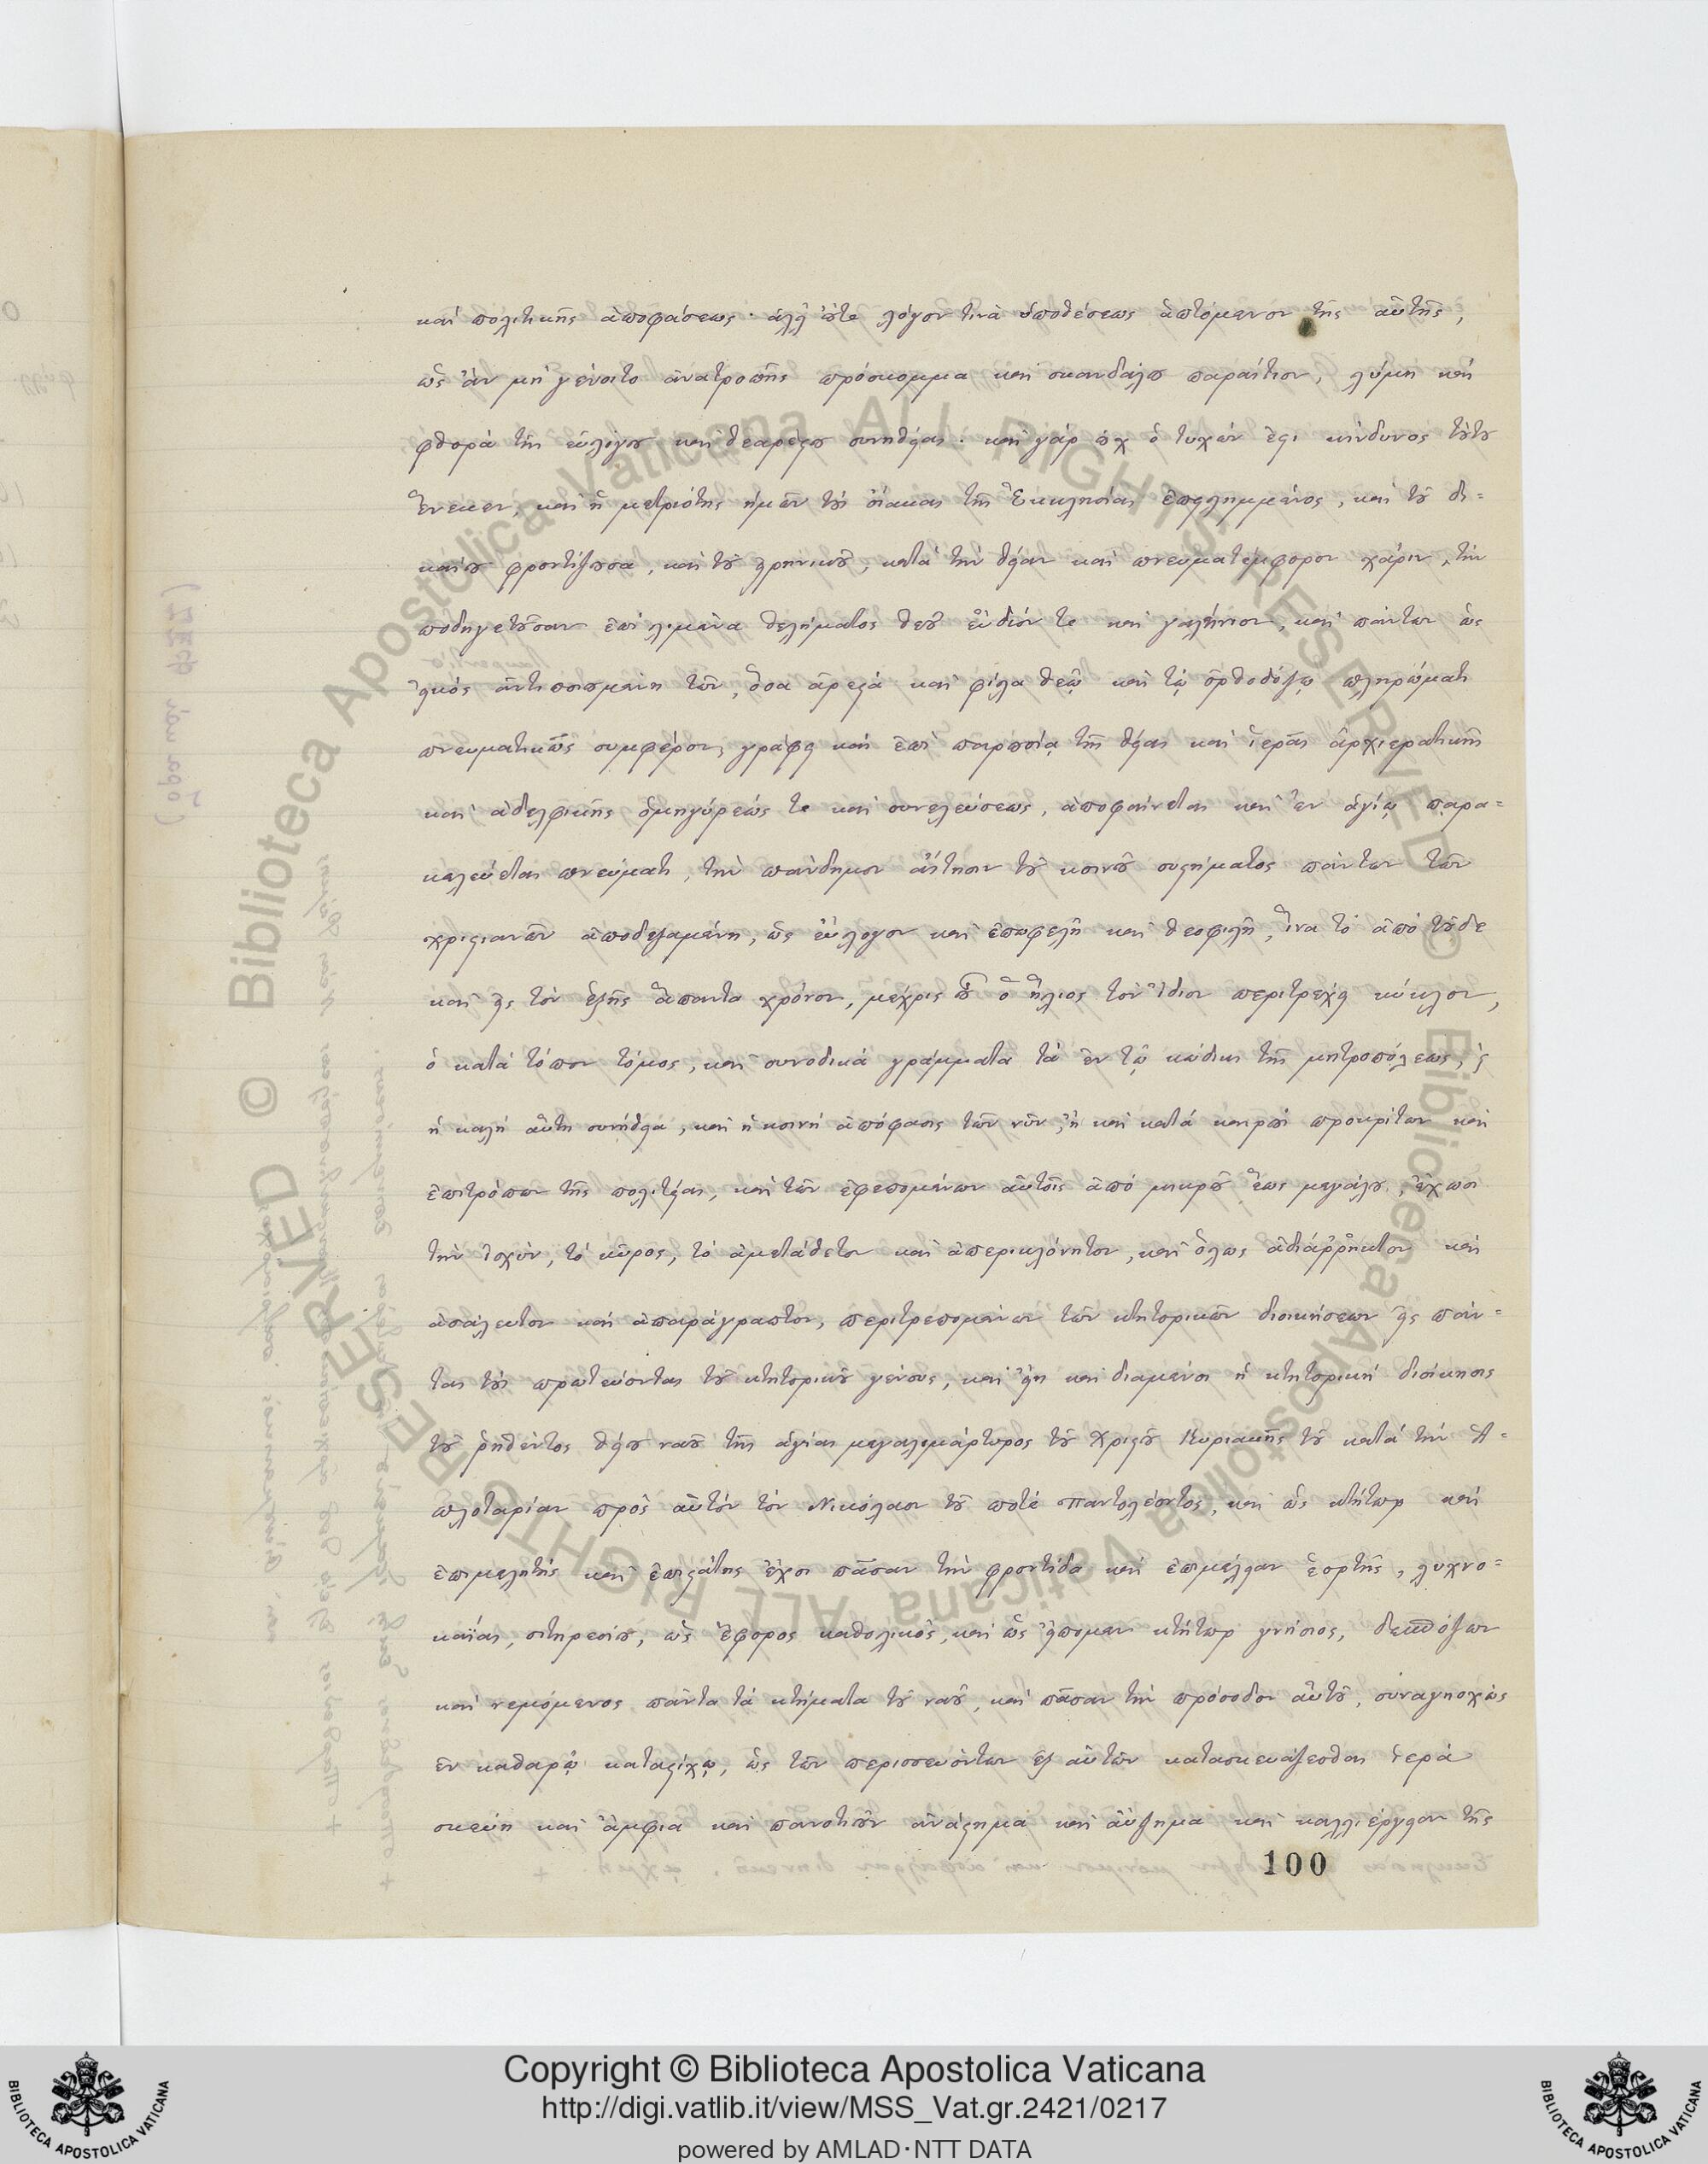 καὶ πολιτικῆς ἀποφάσεως· ἀλλ' οὔτε λόγον τινὰ ὑποθέσεως ἁπτόμενον τῆς αὐτῆς,
ὡς ἂν μὴ γένοιτο ἀνατροπῆς πρόσκομμα καὶ σκανδάλου παραίτιον, λύμη καὶ
φθορὰ τῆς εὐλόγου καὶ θεαρέστου συνηθείας· καὶ γὰρ οὐχ ὁ τυχών ἐστι κίνδυνος τούτου
ἕνεκεν, καὶ ἡ μετριότης ἡμῶν τοὺς οἴακας τῆς Ἐκκλησίας ἐπειλημμένος, καὶ τοῦ δι-
καίου φροντίζουσα, καὶ τοῦ εἰρηνικοῦ, κατὰ τὴν θείαν καὶ πνευματέμφορον χάριν, τὴν
ποδηγετοῦσαν ἐπὶ λιμένα θελήματος θεοῦ εὔδιόν τε καὶ γαλήνιον, καὶ πάντων ὡς
εἰκὸς ἀντιποιουμένη τῶν, ὅσα ἀρεστὰ καὶ φίλα θεῷ καὶ τῷ ὀρθοδόξῳ πληρώματι
πνευματικῶς συμφέρον, γράφει καὶ ἐπὶ παρουσίᾳ τῆς θείας καὶ ἱερᾶς ἀρχιερατικῆς
καὶ ἀδελφικῆς ὁμηγύρεώς τε καὶ συνελεύσεως, ἀποφαίνεται καὶ ἐν ἁγίῳ παρα-
κελεύεται πνεύματι, τὴν πάνδημον αἴτησιν τοῦ κοινοῦ συστήματος πάντων τῶν
χριστιανῶν ἀποδεξαμένη, ὡς εὔλογον καὶ ἐπωφελῆ καὶ θεοφιλῆ, ἵνα τὸ ἀπὸ τοῦδε
καὶ εἰς τὸν ἑξῆς ἅπαντα χρόνον, μέχρις οὗ ὁ ἥλιος τὸν ἴδιον περιτρέχει κύκλον,
ὁ κατὰ τόπον τόμος, καὶ συνοδικὰ γράμματα τὰ ἐν τῷ κώδικι τῆς μητροπόλεως, ϛ
ἡ καλὴ αὕτη συνήθεια, καὶ ἡ κοινὴ ἀπόφασις τῶν νῦν, ἢ καὶ κατὰ καιροὺς προκρίτων καὶ
ἐπιτρόπων τῆς πολιτείας, καὶ τῶν ἐφεπομένων αὐτοῖς ἀπὸ μικροῦ ἕως μεγάλου, ἔχωσι
τὴν ἰσχύν, τὸ κῦρος, τὸ ἀμετάθετον καὶ ἀπερικλόνητον, καὶ ὅλως ἀδιάῤῥηκτον καὶ
ἀσάλευτον καὶ ἀπαράγραπτον, περιτρεπομένων τῶν κτητορικῶν διοικήσεων εἰς πάν-
τας τοὺς πρωτεύοντας τοῦ κτητορικοῦ γένους, καὶ εἴη καὶ διαμένοι ἡ κτητορικὴ διοίκησις
τοῦ ῥηθέντος θείου ναοῦ τῆς ἁγίας μεγαλομάρτυρος τοῦ Χριστοῦ Κυριακῆς τοῦ κατὰ τὴν Ἀ-
πλοταρίαν πρὸς αὐτὸν τὸν Νικόλαον τοῦ ποτὲ Παντολέοντος, καὶ ὡς κτήτωρ καὶ
ἐπιμελητὴς καὶ ἐπιστάτης ἔχοι πᾶσαν τὴν φροντίδα καὶ ἐπιμέλειαν ἑορτῆς, λυχνο-
καΐας, σιτηρεσίου, ὡς ἔφορος καθολικός, καὶ ὡς εἴπομεν κτήτωρ γνήσιος, δεσπόζων
καὶ νεμόμενος πάντα τὰ κτήματα τοῦ ναοῦ, καὶ πᾶσαν τὴν πρόσοδον αὐτοῦ, συναγηοχὼς
ἐν καθαρῷ καταστίχῳ, ὡς τῶν περισσευόντων ἐξ αὐτῶν κατασκευάζεσθαι ἱερὰ
σκεύη καὶ ἄμφια καὶ πᾶν ὁτιοῦν ἀνάστημα καὶ αὔξημα καὶ καλλιέργειαν τῆς
100
Copyright © Biblioteca Apostolica Vaticana
http://digi.vatlib.it/view/MSS_Vat.gr.2421/0217
powered by AMLAD·NTT DATA
BIBLIOTECA APOSTOLICA VATICANA
BIBLIOTECA APOSTOLICA VATICANA
© Biblioteca Apostolica Vaticana ALL RIGHTS RESERVED
© Biblioteca Apostolica Vaticana ALL RIGHTS RESERVED